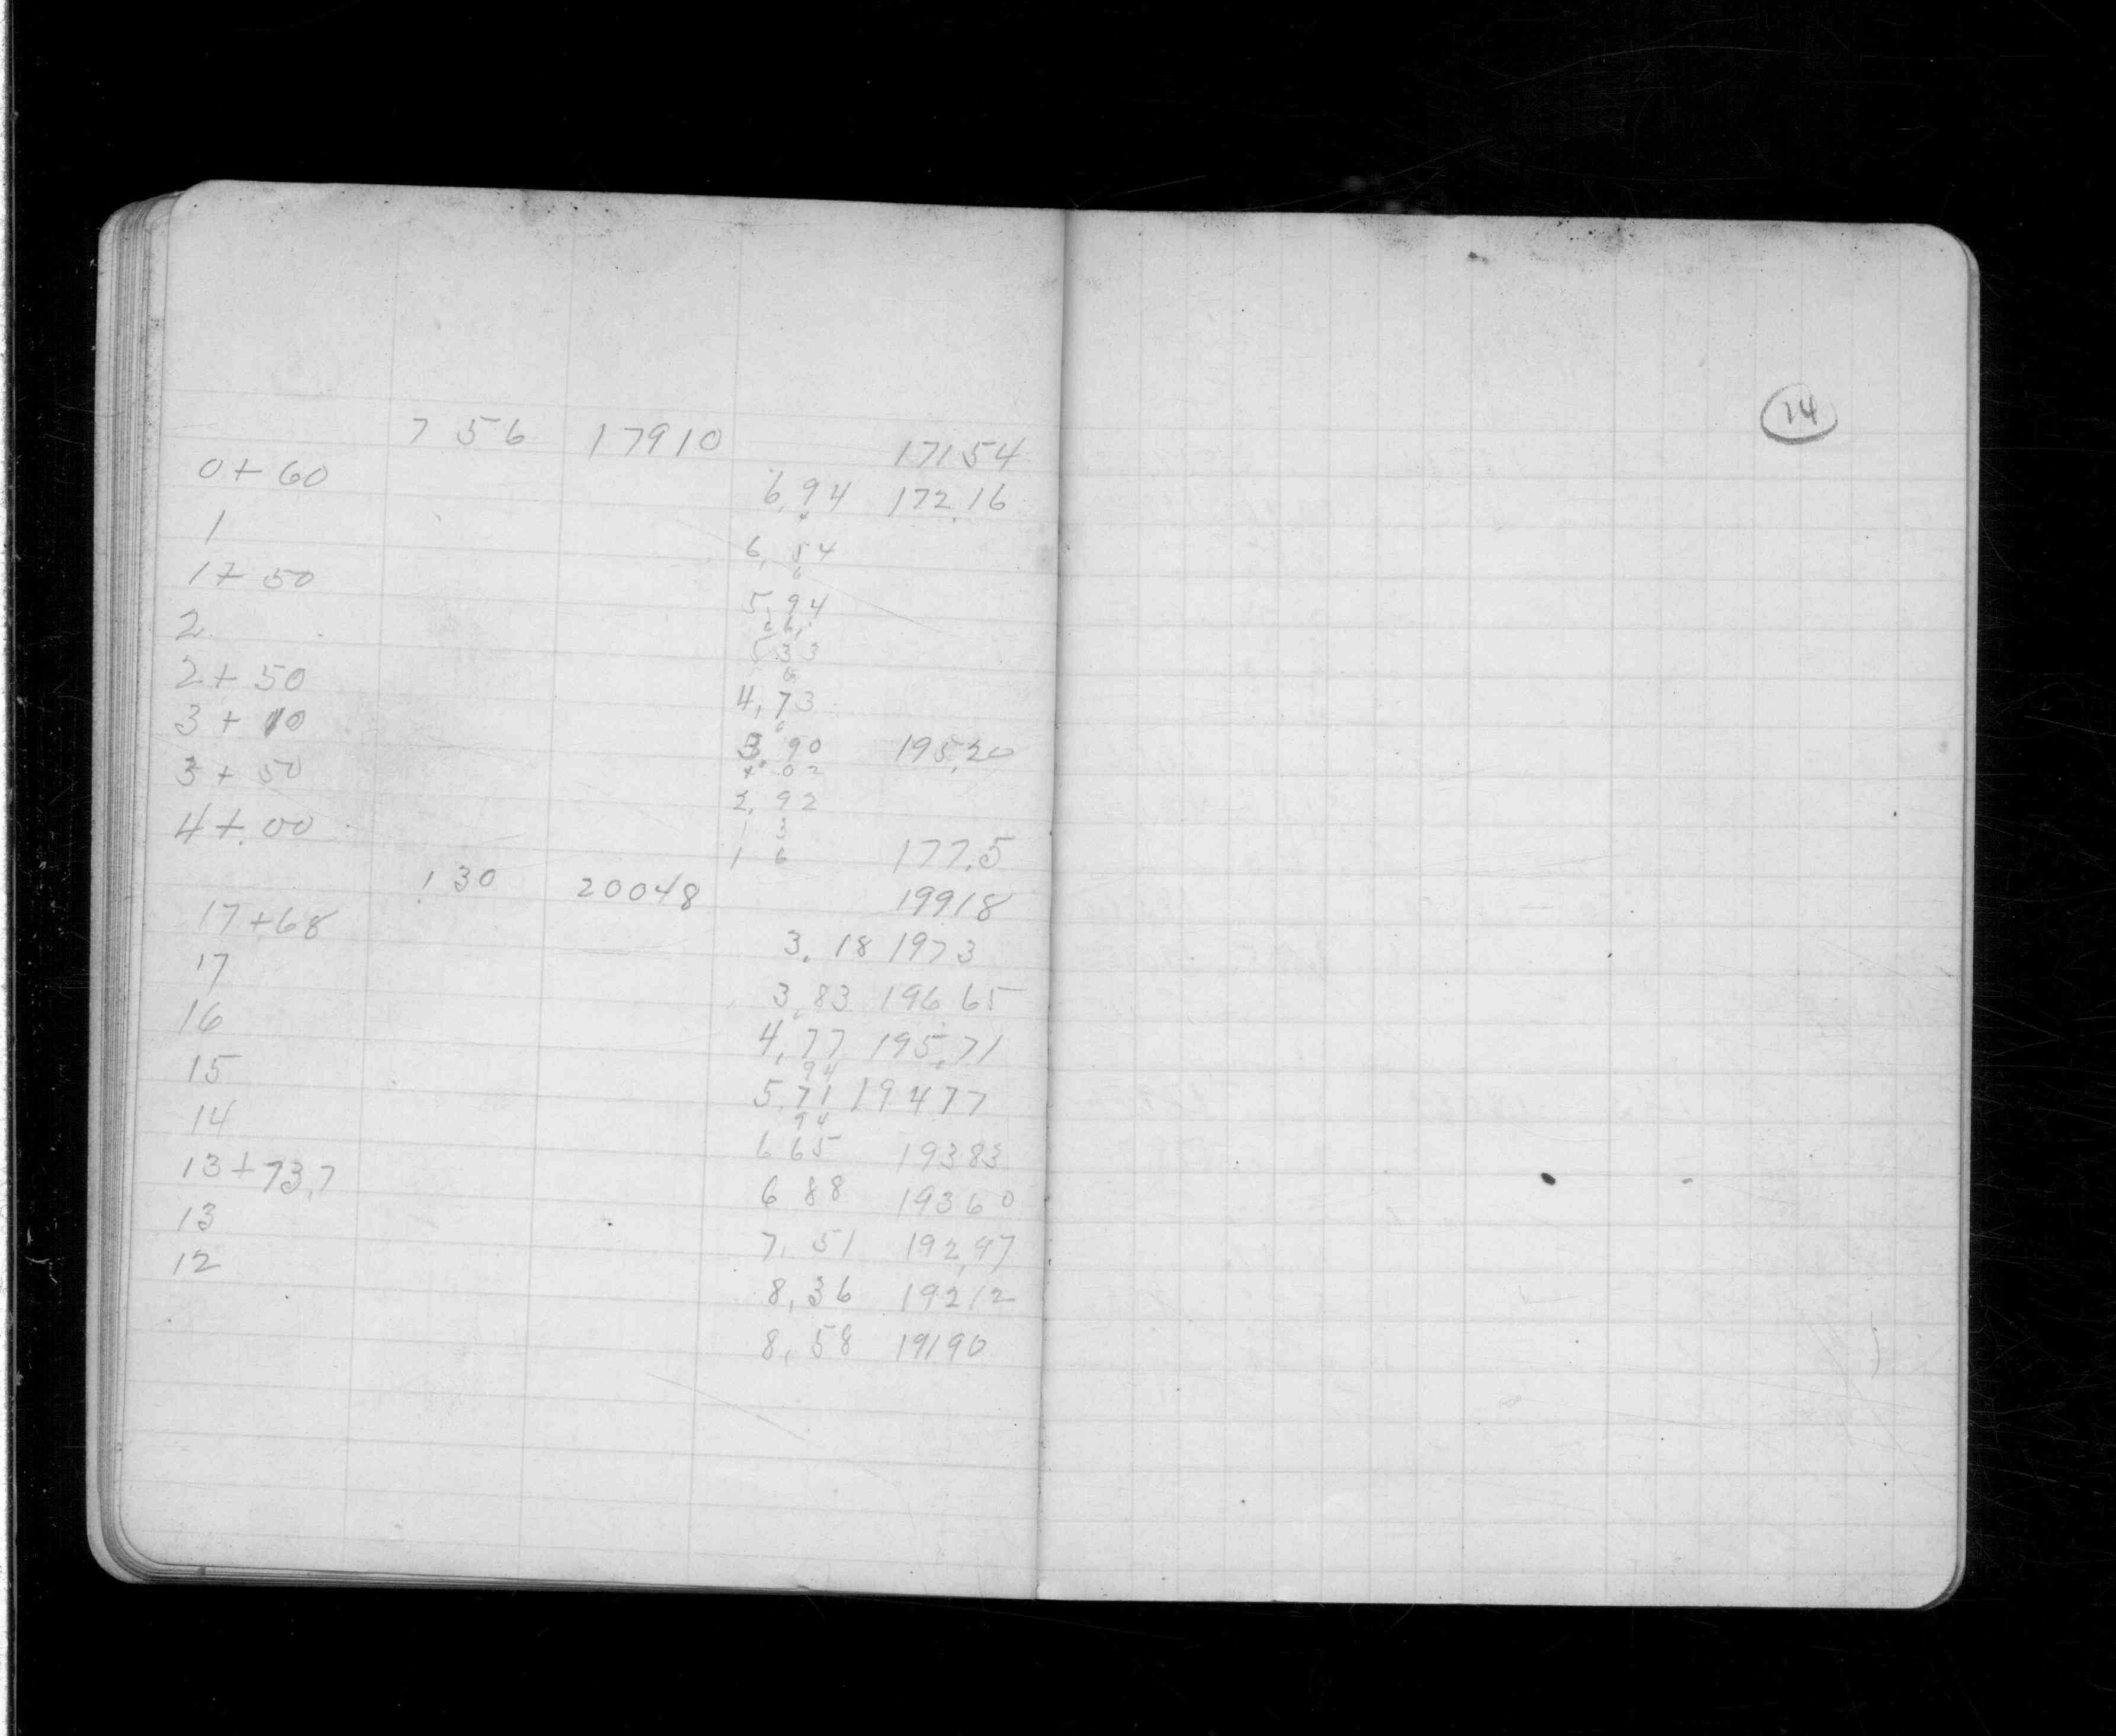 14
7 56 17910 17154
0+60 6,94 172.16
1 6,54
6
1+50 5,94
2 5 33
6
2+50 4,73
6
3+10 3 90 195.20
02
3+50 2,92
3
4+.00 1 6 177.5
1 30 20048 19918
17+68 3.18 1973
17 3.83 196 65
16 4,77 195.71
94
15 5.71 19477
94
14 6 65 19383
13+73.7 6 88 19360
13 7,51 192,97
12 8,36 19212
8,58 19190